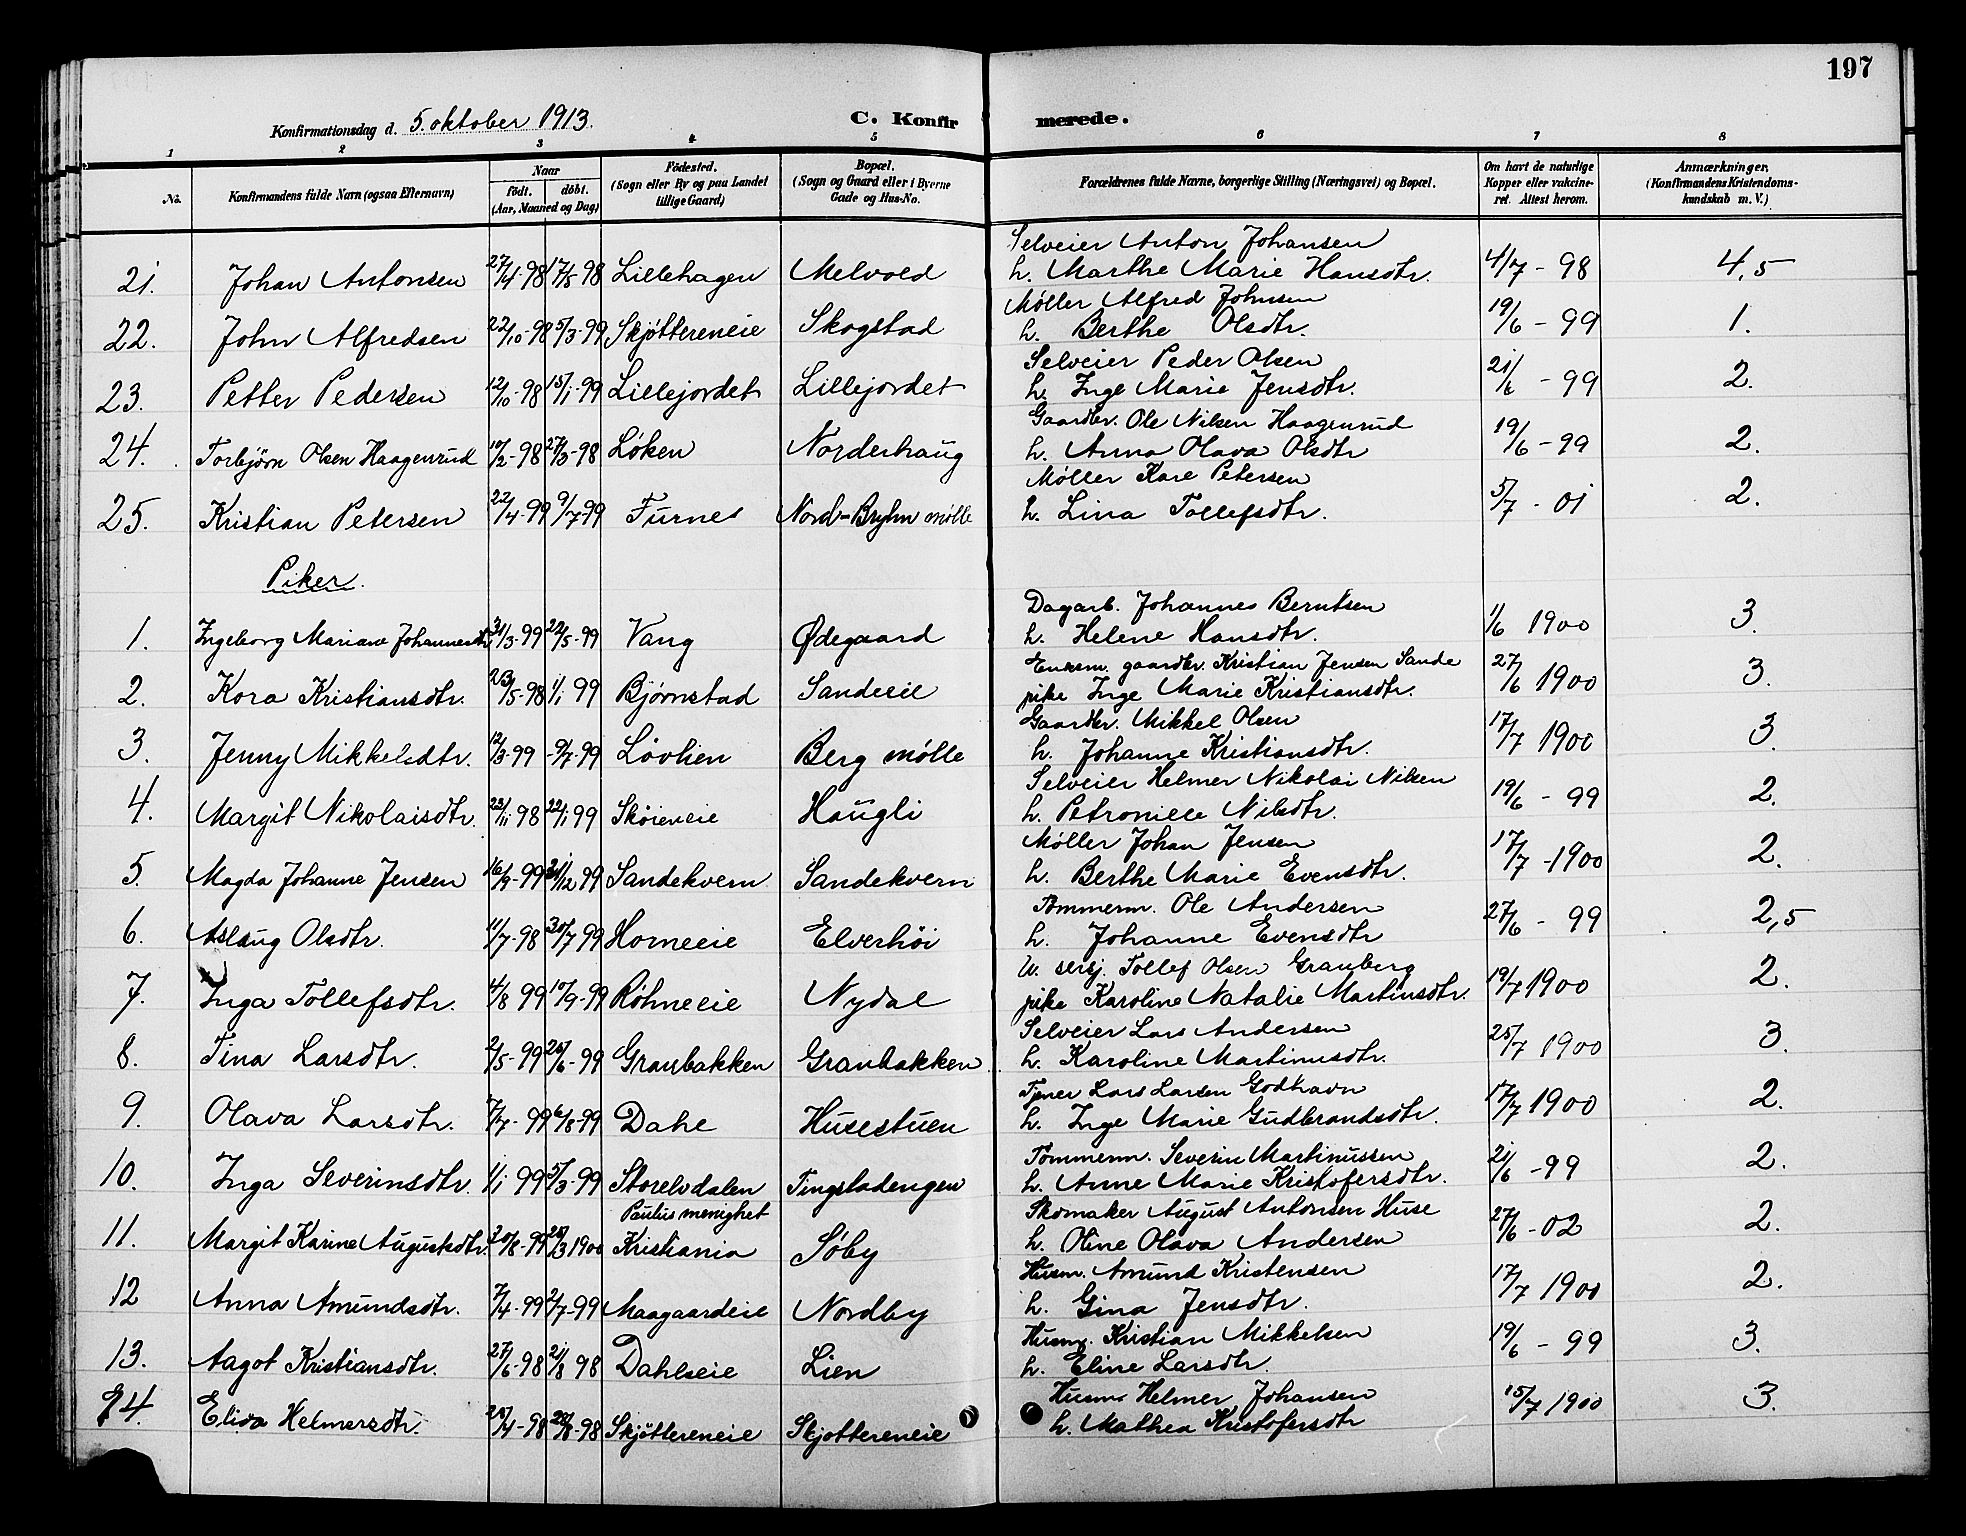 197
Konfirmationsdag d. 5. oktober 1913. C. Konfirmerede.
1 2 3 4 5 6 7 8
No. Konfirmandens fulde Navn (ogsaa Efternavn) Naar født. døbt. (Aar, Maaned og Dag) Fødested. (Sogn eller By og paa Landet tillige Gaard) Bopæl. (Sogn og Gaard eller i Byerne Gade og Hus-No. Forældrenes fulde Navne, borgerlige Stilling (Næringsvei) og Bopæl. Om havt de naturlige Kopper eller vakcineret. Attest herom. Anmærkninger. (Konfirmandens Kristendomskundskab m. V.)
Selveier Anton Johansen
21. Johan Antonsen 27/4-98 17/5-98 Lillehagen Melvold h. Marthe Marie Hansdtr. 4/7-98 4,5
Møller Alfred Johnsen
22. John Alfredsen 22/10-98 5/3-99 Skjøttereneie Skogstad h. Berthe Olsdtr. 19/6-99 1.
Selveier Peder Olsen
23. Petter Pedersen 12/10-98 15/1-99 Lillejordet Lillejordet h. Inge Marie Jensdtr. 21/6-99 2.
Gaardbr. Ole Nilsen Haagenrud
24. Torbjørn Olsen Haagenrud 10/2-98 27/3-98 Løken Norderhaug h. Anna Olava Olsdtr 19/6-99 2.
Møller Kare Petersen
25. Kristian Petersen 22/4-99 9/7-99 Furnes Nord-Bryhn mølle h. Lina Tollefsdtr. 5/7-01 2.
Piker.
Dagarb. Johannes Berntsen
1. Ingeborg Mariane Johannesdtr 31/3-99 22/5-99 Vang Ødegaard h. Helene Hansdtr. 1/6 1900 3.
Enkem. gaardbr. Kristian Jensen Sande
2. Kora Kristiansdtr. 23/5-98 1/1 99 Bjørnstad Sandeeie pike Inge Marie Kristiansdtr. 27/6 1900 3.
Gaardbr. Mikkel Olsen
3. Jenny Mikkelsdtr. 12/3-99 9/7-99 Løvlien Berg mølle h. Johanne Kristiansdtr. 17/7 1900 3.
Selveier Helmer Nikolai Nilsen
4. Margit Nikolaisdtr. 23/11 98 22/1 99 Skøieneie Haugli h. Petronille Nilsdtr. 19/6-99 2.
Møller Johan Jensen
5. Magda Johanne Jensen 16/9-99 31/12 99 Sandekvern Sandekvern h. Berthe Marie Evensdtr. 17/7-1900 2.
Tømmerm. Ole Andersen
6. Aslaug Olsdtr. 11/7-98 30/7 99 Horneeie Elverhöi h. Johanne Evensdtr 27/6-99 2,5
U. sersj. Tollef Olsen Granberg
7. Inga Tollefsdtr. 4/8 99 10/9-99 Röhneeie Nydal pike Karoline Natalie Martinsdtr. 19/7 1900 2.
Selveier Lars Andersen
8. Tina Larsdtr. 2/5-99 25/6-99 Granbakken Granbakken h. Karoline Martinusdtr. 25/7 1900 3.
Tjener Lars Larsen Godhavn
9. Olava Larsdtr. 7/7-99 6/8-99 Dahl Husestuen h. Inge Marie Gudbrandsdtr. 17/7 1900 2.
Tømmerm. Severin Martinussen
10. Inga Severinsdtr. 1/1 99 5/3-99 Storelvdalen Tingstadengen h. Anne Marie Kristofersdtr. 21/6-99 2.
Paulus menighet Skomaker August Antonsen Huse
11. Margit Karine Augustsdtr. 20/8-99 25/3 1900 Kristiania Søby h. Oline Olava Andersen 27/6-02 2.
Husm. Amund Kristensen
12 Anna Amundsdtr. 7/4-99 2/7-99 Maagaardeie Nordby h. Gina Jensdtr. 17/7 1900 2.
Husm. Kristian Mikkelsen
13. Aagot Kristiansdtr. 27/6-98 21/8 98 Dahleeie Lien h. Eline Larsdtr. 19/6-99 3.
Husm. Helmer Johansen
14. Elida Helmersdtr. 20/4-98 28/8-98 Skjøttereneie Skjøttereneie h. Mathea Kristofersdtr 15/7 1900 3.